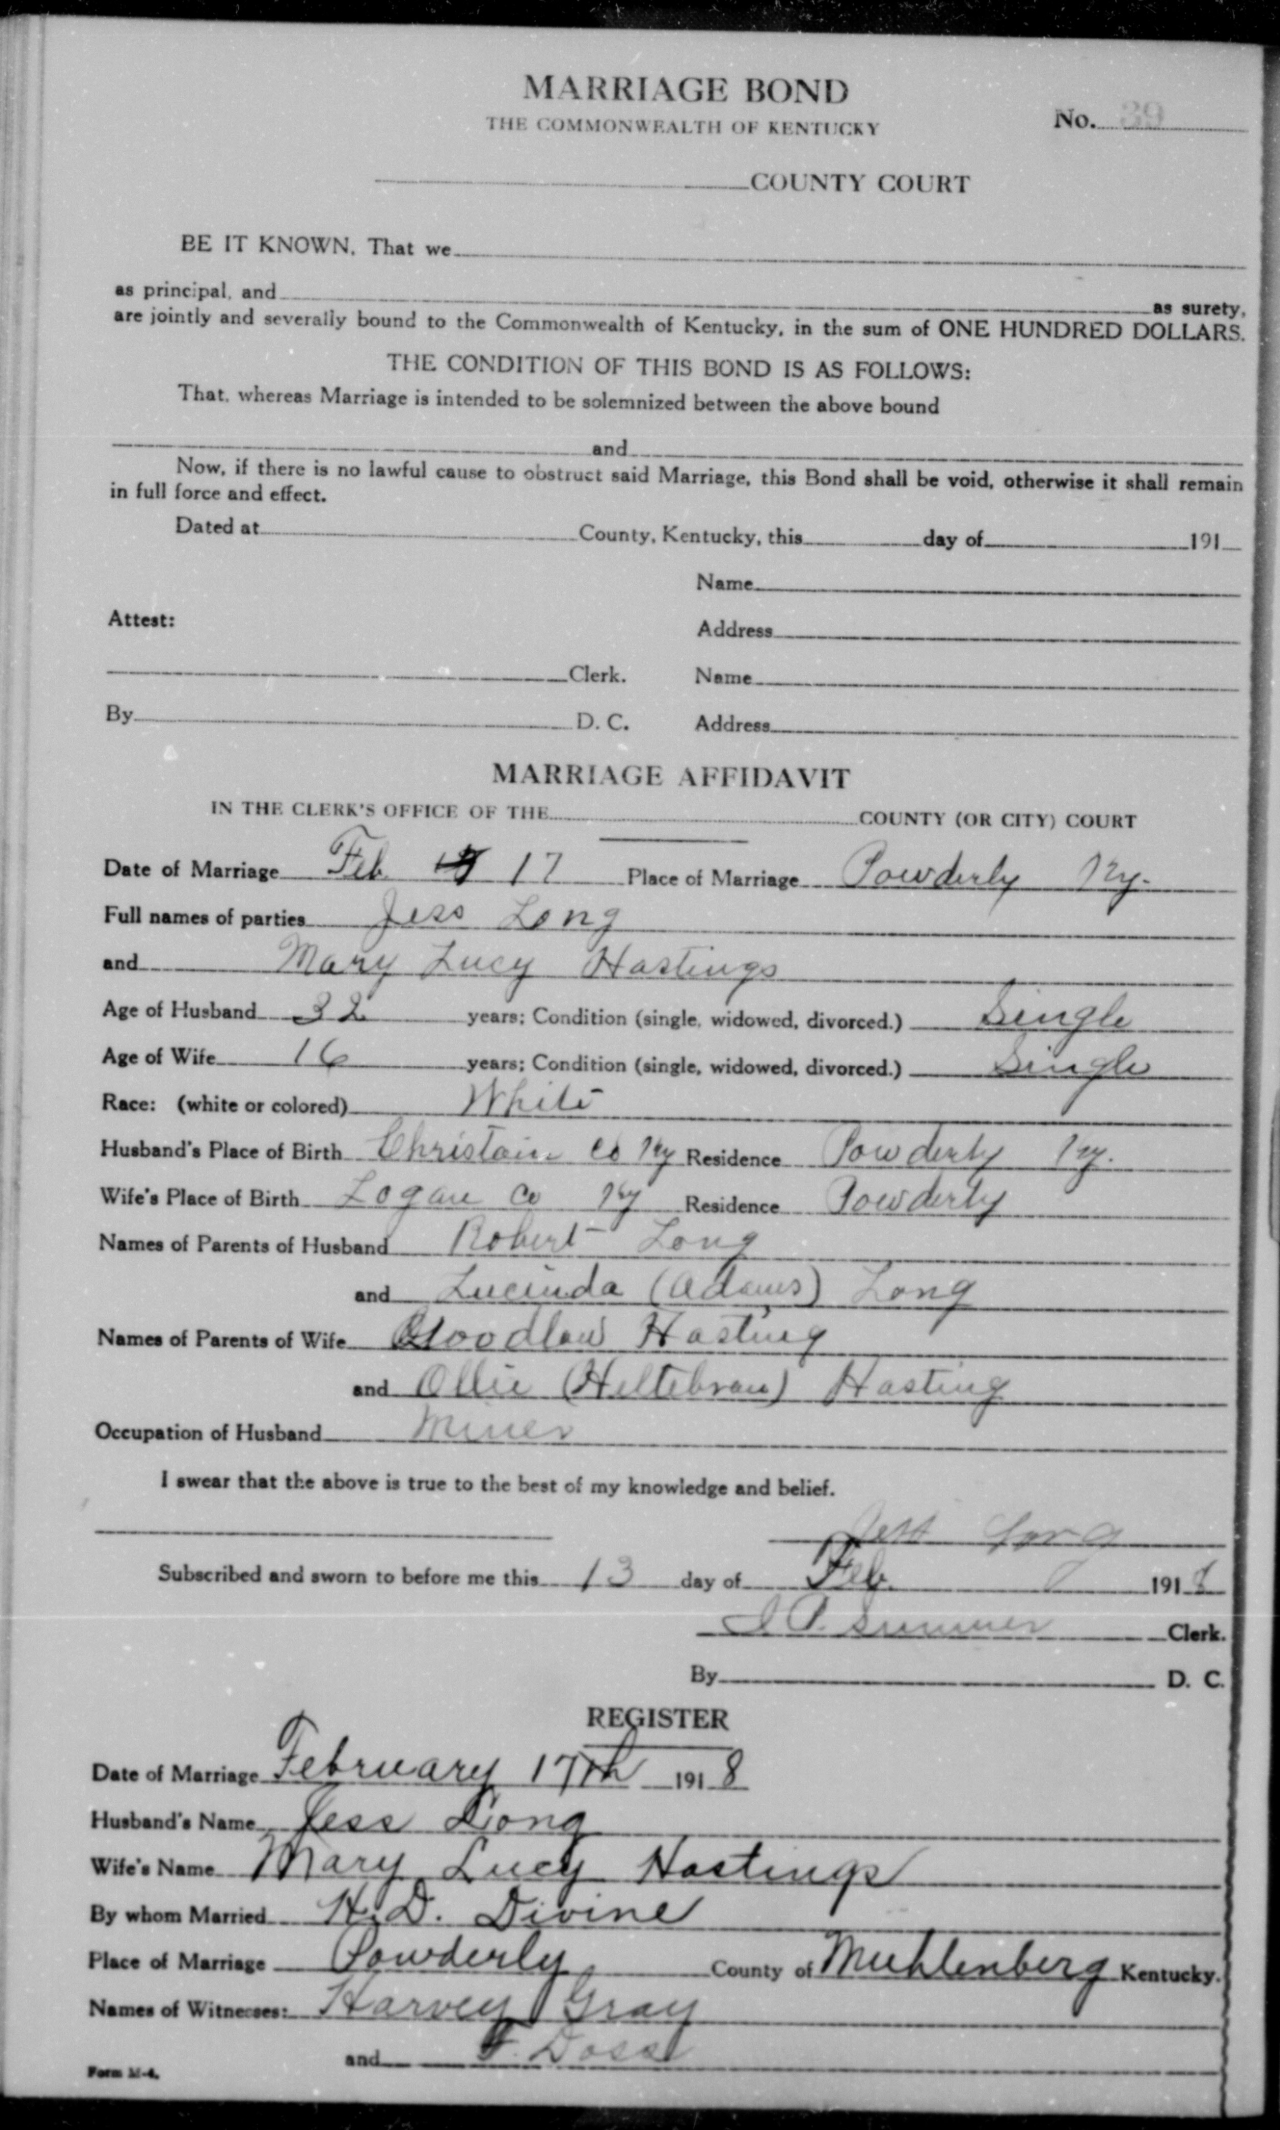 MARRIAGE BOND
THE COMMONWEALTH OF KENTUCKY
No. 39
COUNTY COURT
BE IT KNOWN, That we
as principal, and as surety,
are jointly and severally bound to the Commonwealth of Kentucky, in the sum of ONE HUNDRED DOLLARS.
THE CONDITION OF THIS BOND IS AS FOLLOWS:
That, whereas Marriage is intended to be solemnized between the above bound
and
Now, if there is no lawful cause to obstruct said Marriage, this Bond shall be void, otherwise it shall remain
in full force and effect.
Dated at County, Kentucky, this day of 191
Name
Attest:
Address
Clerk. Name
By D. C. Address
MARRIAGE AFFIDAVIT
IN THE CLERK'S OFFICE OF THE COUNTY (OR CITY) COURT
Date of Marriage Feb 17 Place of Marriage Powderly Ky.
Full names of parties Jess Long
and Mary Lucy Hastings
Age of Husband 32 years; Condition (single, widowed, divorced.) Single
Age of Wife 16 years; Condition (single, widowed, divorced.) Single
Race: (white or colored) White
Husband's Place of Birth Christain Co Ky Residence Powderly Ky.
Wife's Place of Birth Logan Co Ky Residence Powderly
Names of Parents of Husband Robert Long
and Lucinda (Adams) Long
Names of Parents of Wife Goodlow Hasting
and Ollie (Hiltebran) Hasting
Occupation of Husband Miner
I swear that the above is true to the best of my knowledge and belief.
Jess Long
Subscribed and sworn to before me this 13 day of Feb. 1918
Summer Clerk.
By D. C.
REGISTER
Date of Marriage February 17th 1918
Husband's Name Jess Long
Wife's Name Mary Lucy Hastings
By whom Married H. D. Divine
Place of Marriage Powderly County of Muhlenberg Kentucky.
Names of Witnesses: Harvey Gray
and F. Doss
Form M-4.